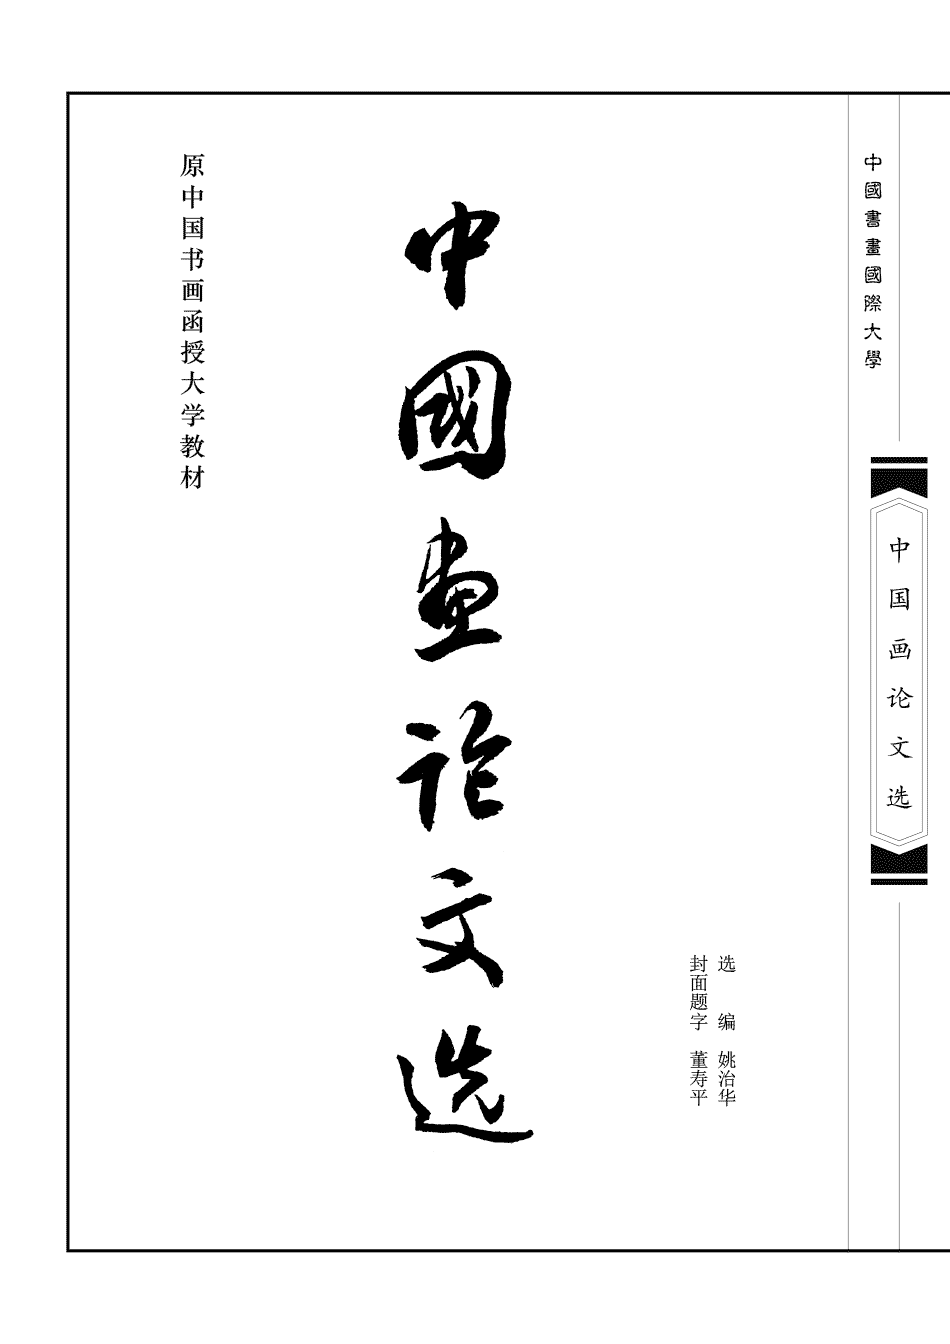 中國書畫國際大學
中国画论文选
选 编 姚治华
封面题字 董寿平
中國画论文选
原中国书画函授大学教材